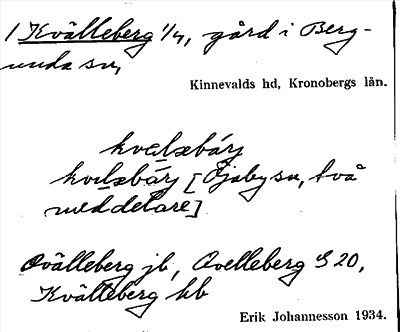 1 Kvälleberg 1/4, gård i Berg-
unda sn,
Kinnevalds hd, Kronobergs län.
kvelæbárj
kvelæbárj [Öjaby sn, två
meddelare]
Qvälleberg jb, Qvelleberg S 20,
Kvälleberg kb
Erik Johannesson 1934.